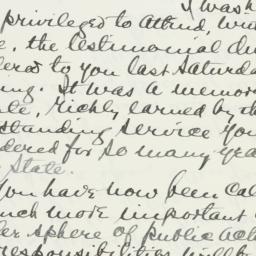 I was
privileged to attend, with
the testimonial din
to you last Saturda
ing. It was a memor
richly earned by th
standing service you
dered for so many yea
State.
you have now been cal
much more important
sphere of public acti
responsibilities will be